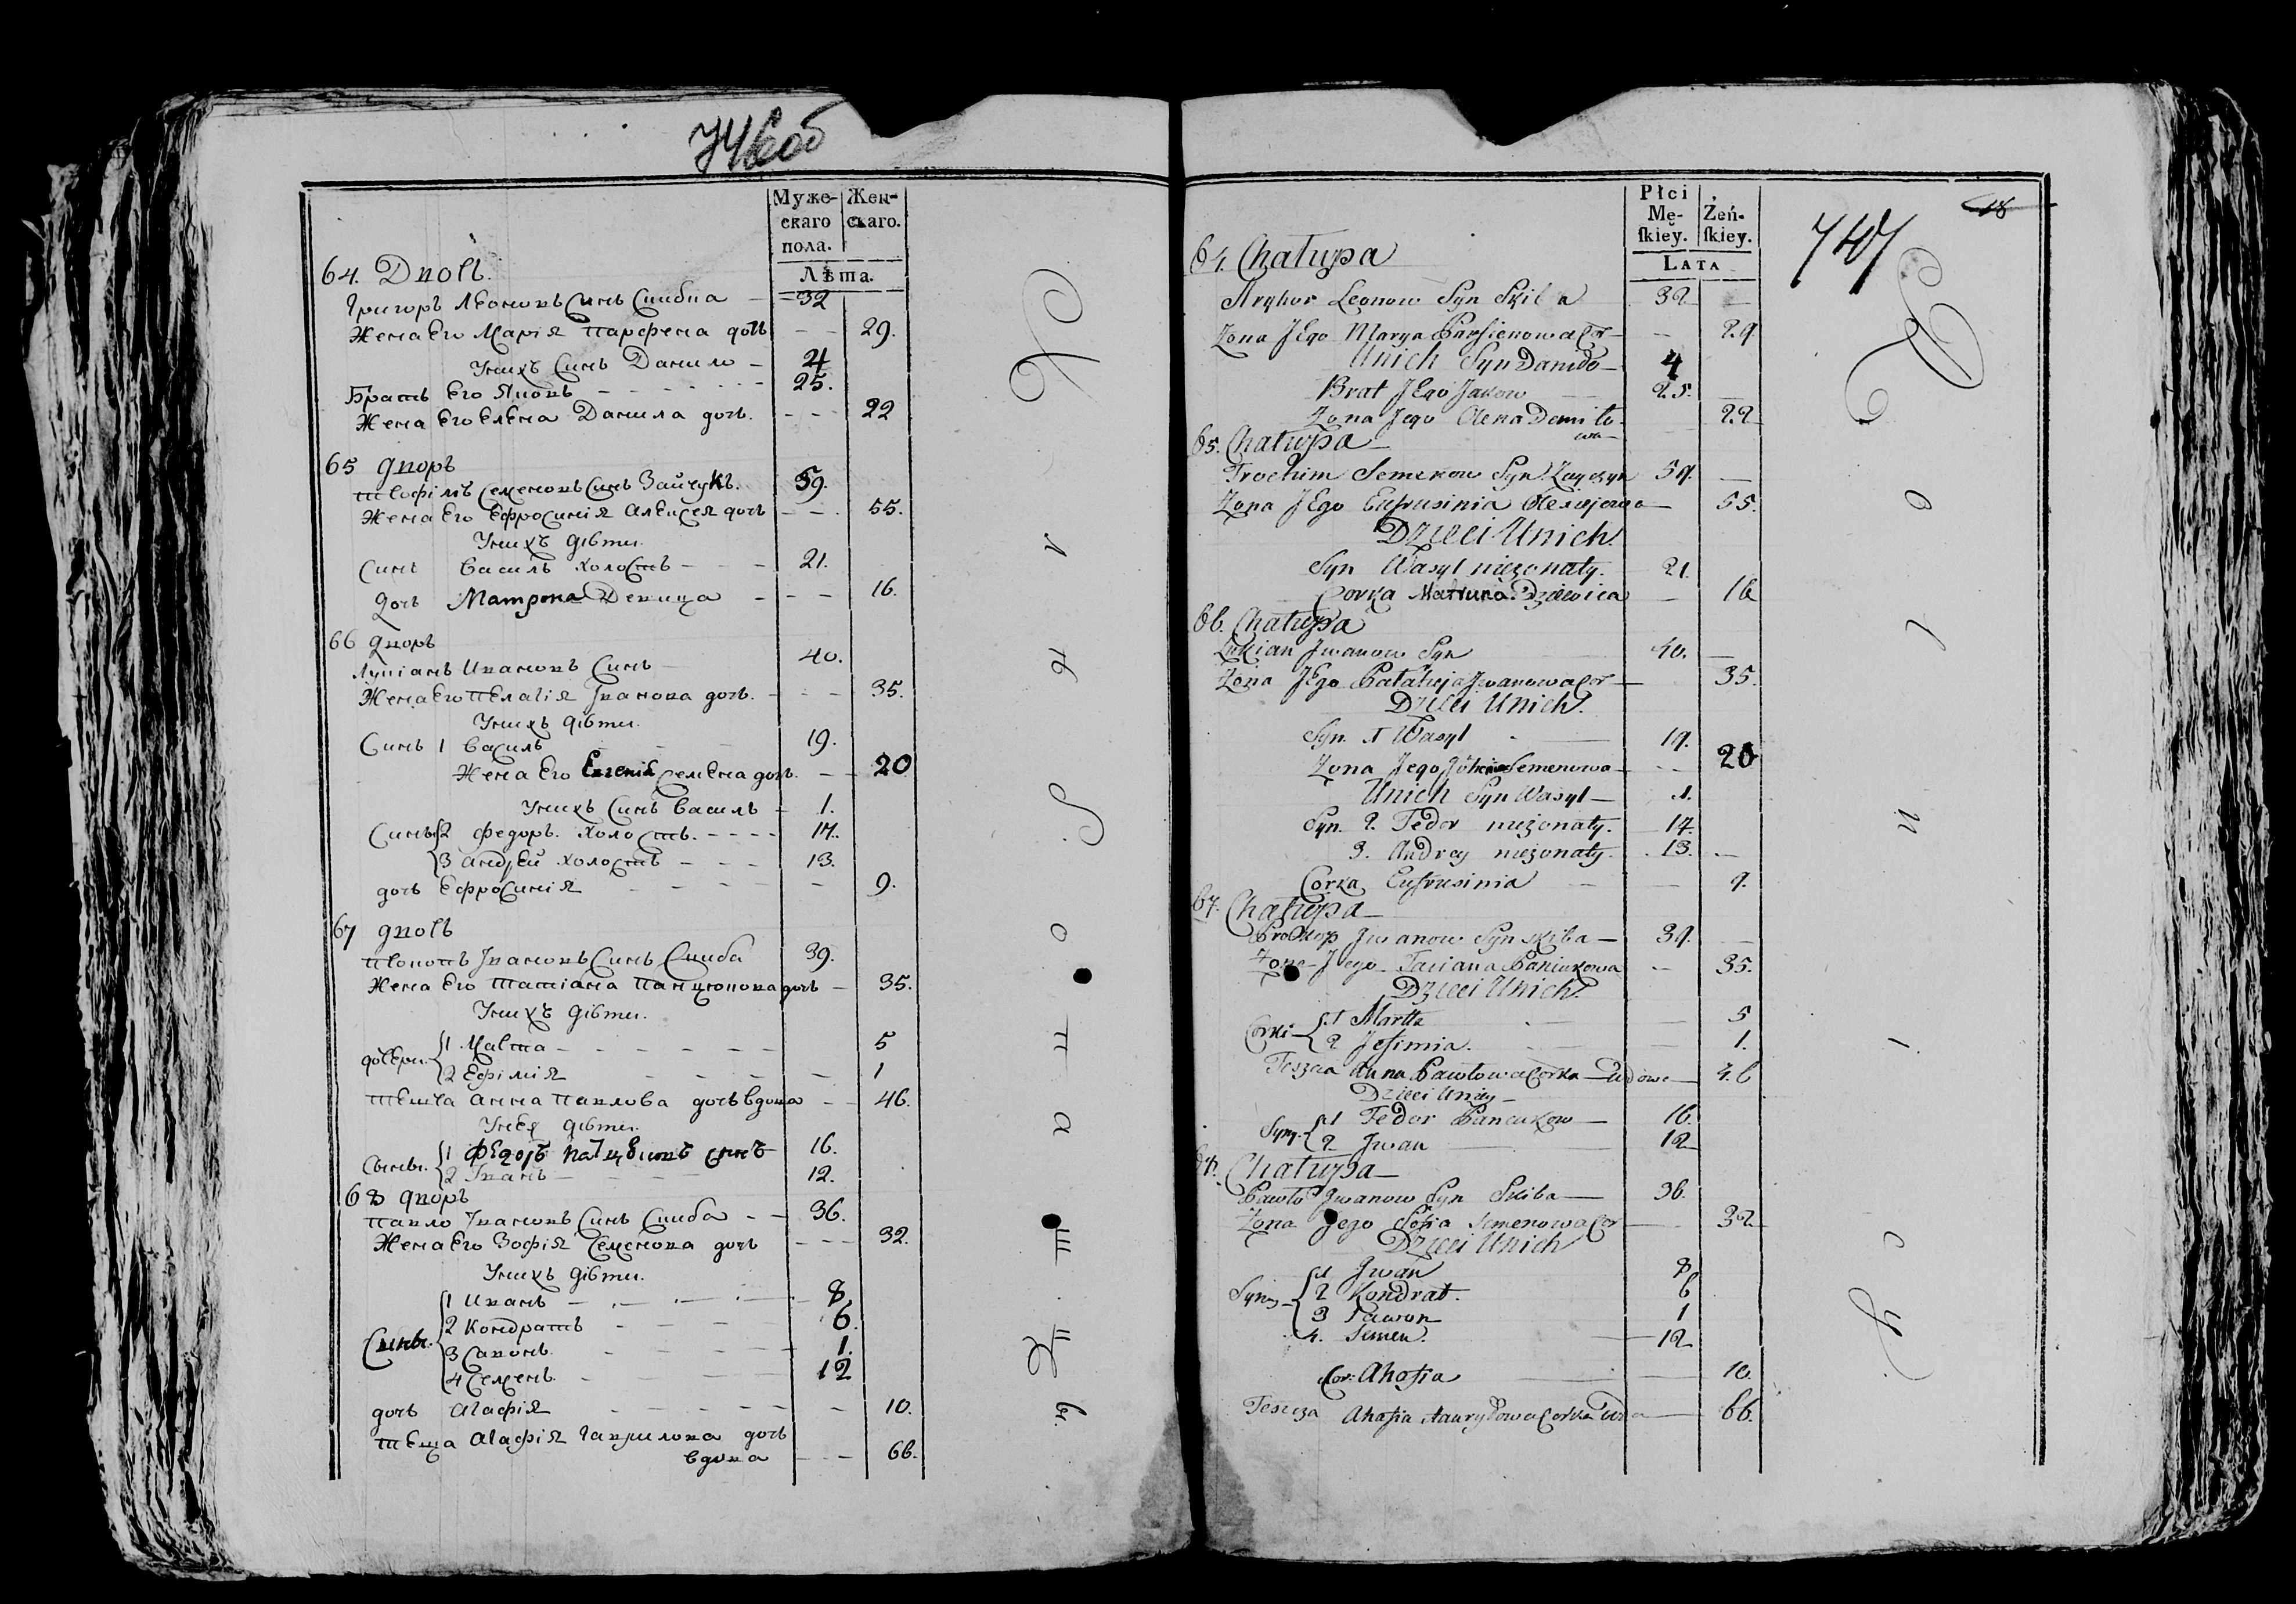 746об
Муже-
скаго
пола.
Жен-
скаго.
Лѣта.
64. Дворъ.
Григоръ Леоновъ Синъ Скибка 32
Жена Его Марія Парфена дочь 29.
Унихъ Синъ Данило 4
Братъ Его Яковъ 25.
Жена Его Елена Данила дочь. 22
65 дворъ
Семеновъ Синъ Зайчукъ. 59.
Жена Его Ефросинія Алексея дочь 55.
Унихъ діти.
Синъ Василъ холостъ 21.
дочь Матрона Девица 16.
66 дворъ
Лукіанъ Ивановъ Синъ 40.
Жена Его Пелагія Іванова дочь. 35.
Унихъ діти.
Синъ 1 Василъ 19.
Жена Его Евгенія Семена дочь. 20
Унихъ Синъ Василъ 1.
Сины 2 Федоръ. холостъ. 17.
3 Андрей холостъ 13.
дочь Ефросинія 9.
67 дворъ
Івановъ Синъ Скиба 39.
Жена Его Татіана дочь 35.
Унихъ діти.
дочери. 1 Марта 5
2 Ефімія 1
Тешча Анна Павлова дочь вдова 46.
Унея діти.
Сыны. 1 Федоръ синъ 16.
2 Іванъ 12.
68 дворъ
Павло Івановъ Синъ Скиба 36.
Жена Его Зофія Семенова дочь 32.
Унихъ діти.
Сины. 1 Иванъ 8
2 Кондратъ 6.
3 Савонъ. 1.
4 Семенъ. 12
дочь Агафія 10.
Теща Агафія Гаврилова дочь
вдова 66.
747
18
Płci
Mę-
skiey.
Żeń-
skiey.
LATA
64. Chałupa
Hryhor Leonow Syn Skiba 32
Zona JEgo Marya Parfienowa Cor 29.
Unich Syn Daniło 4
Brat JEgo Jakow 25.
Zona Jego Olena Demiło-
wa 22
65. Chałupa
Trochim Semenow Syn Zayczyk 59.
Zona JEgo Eufrusinia Olexijowa 55.
Dzieci Unich.
Syn Wasyl niezonaty. 21.
Corka Matruna Dziewica 16
66. Chałupa
Łukian Jwanow Syn 40.
Zona JEgo Pałahija Jwanowa Cor 35.
Dzieci Unich.
Syn. 1 Wasyl 19.
Zona Jego Semenowa 20
Unich Syn Wasyl 1.
Syn. 2. Fedor niezonaty. 17.
3. Andrey niezonaty. 13.
Corka Eufrusinia 9.
67. Chałupa
Prokop Jwanow Syn Skiba 39.
Zona Jego Taciana Paniukowa 35.
Dzieci Unich.
Corki 1 Marta 5
2 Jefimia. 1.
Teszcza Anna Pawłowa Corka Wdowa 46
Dzieci Uniey
Syny. 1 Fedor Pancukow 16.
2. Jwan 12
68. Chałupa
Pawło Jwanow Syn Skiba 36.
Zona Jego Zofia Semenowa Cor 32
Dzieci Unich
Syny 1 Jwan 8
2 Kondrat. 6
3 Sawon 1
4. Semen. 12
Cor: Ahafia 10.
Tescza Ahafia Hauryłowa Corka Wdo 66.